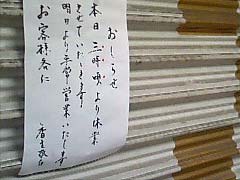 おしらせ
本日三時頃より休業
させていただきます
明日より平常営業いたします
お客様各位